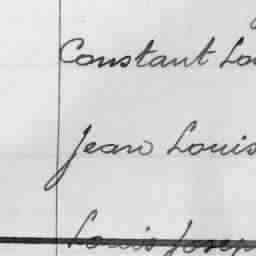 Constant Lou
Jean Louis
Louis Josep